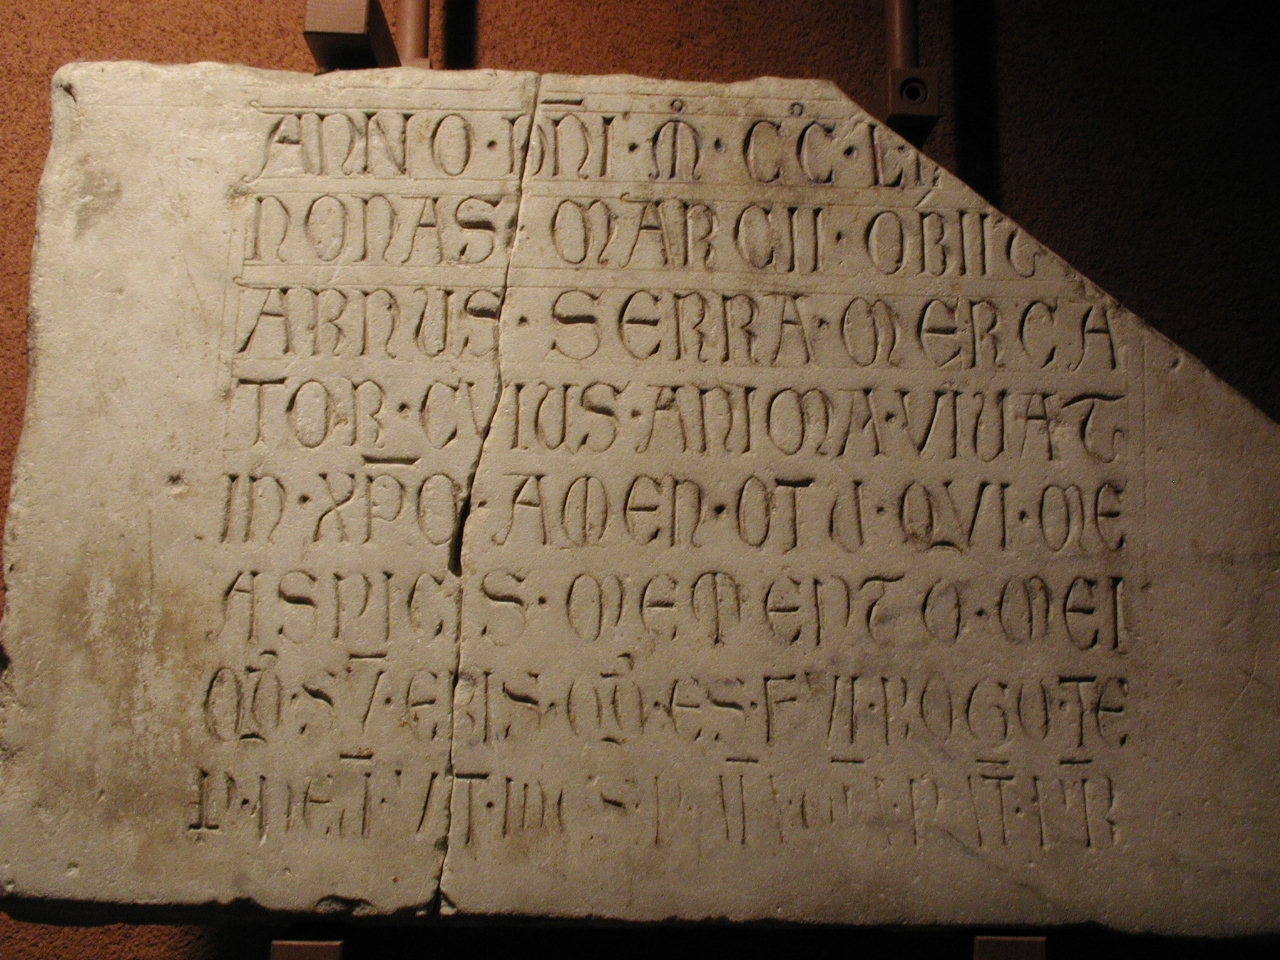 ANNO · DNI · M · CC · L
NONAS · MARCII · OBIIT
ARNUS · SERRA · MERCA
TOR · CVIUS · ANIMA · VIUAT
IN · XPO · AMEN · O TU · QVI · ME
ASPICS · MEMENTO · MEI
QD · S · 7 · ERIS · QD · ES · FVI · ROGO · TE
P · ME · VT · IN